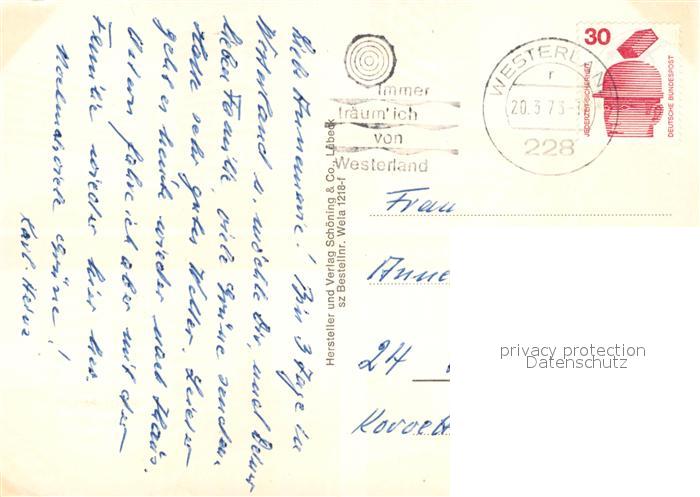 Liebe Annemarie! Bin 3 Tage in
Westerland u. möchte Dir und Deiner
lieben Familie viele Grüsse senden.
Habe sehr gutes Wetter. Leider
geht es heute wieder nach Haus.
Ostern fahre ich aber mit der
Familie wieder hier her.
Nochmals viele Grüsse!
Karl-Heinz
Hersteller und Verlag Schöning & Co., Lübeck
sz Bestellnr. Wela 1218-f
Immer
träum' ich
von
Westerland
WESTERLAND
r
20.3.73
228
30
JEDERZEIT SICHERHEIT
DEUTSCHE BUNDESPOST
Frau
Anne
24
privacy protection
Datenschutz